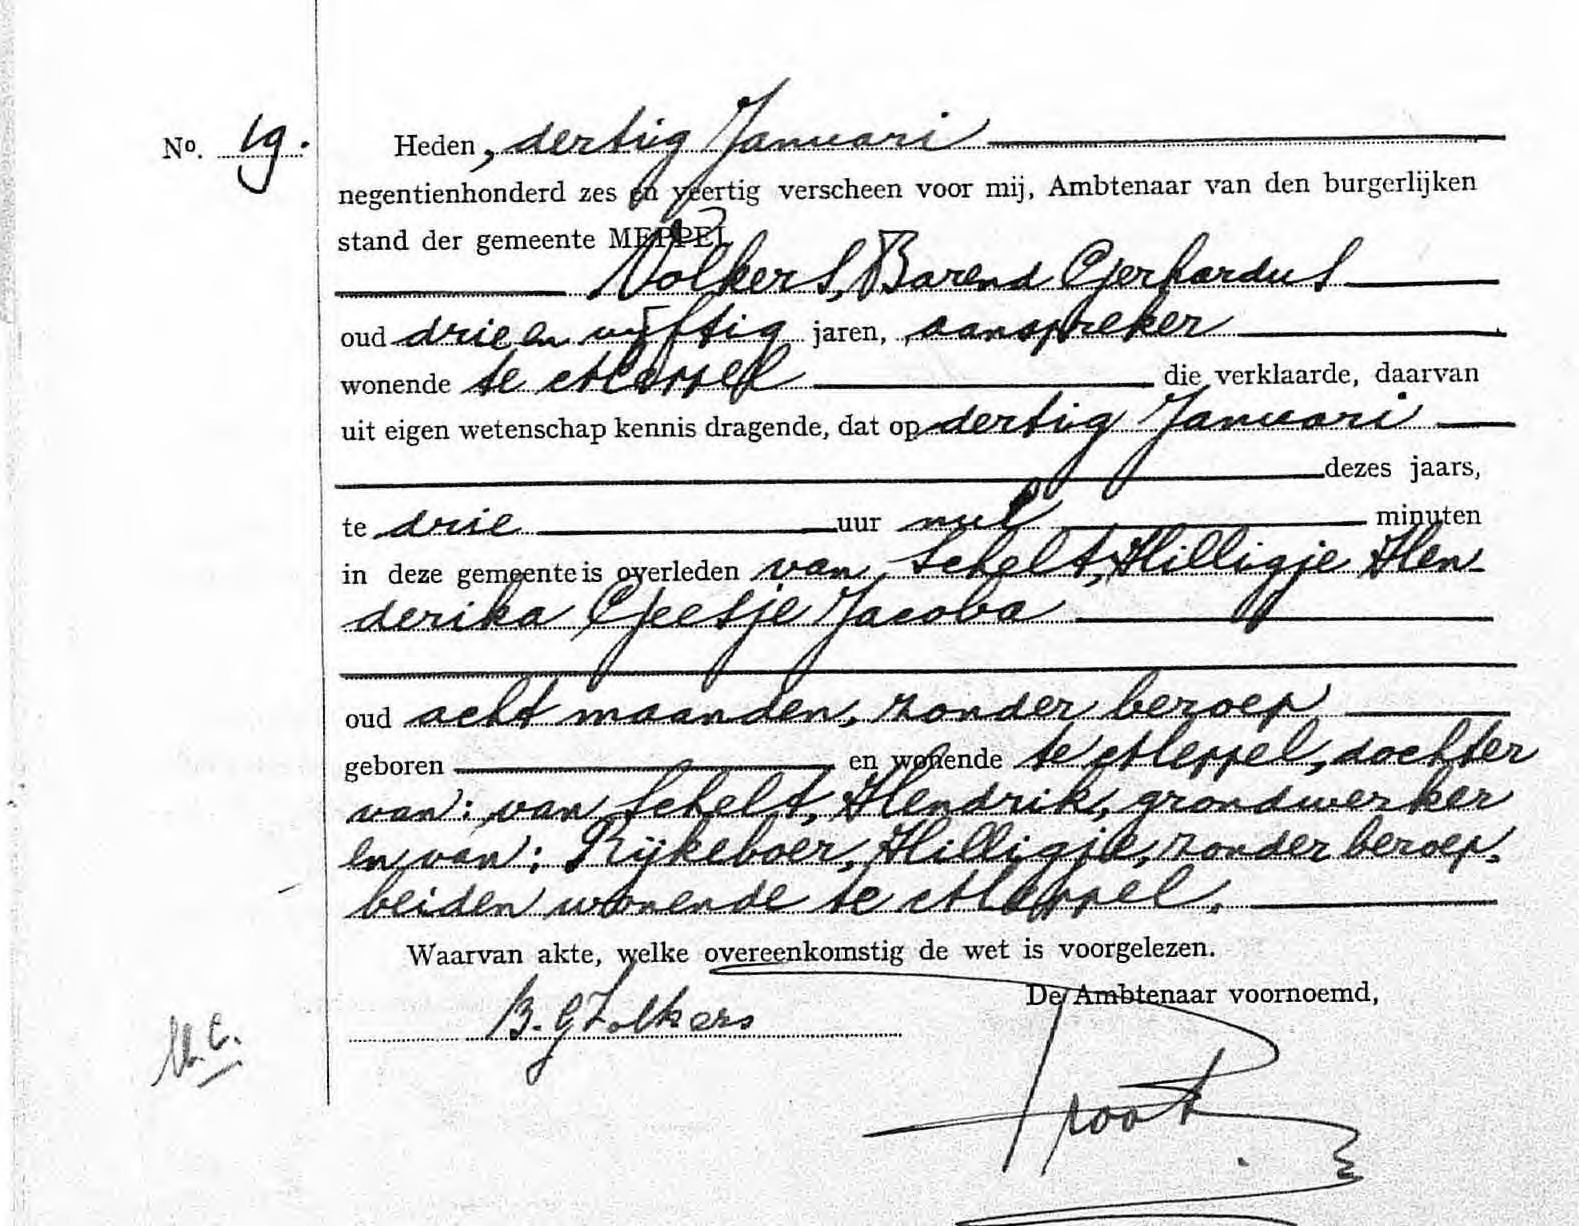 No. 19.
Heden, dertig Januari
negentienhonderd zes en veertig verscheen voor mij, Ambtenaar van den burgerlijken
stand der gemeente MEPPEL
Volkers, Barend Gerhardus
oud drie en vijftig jaren, aanspreker
wonende te Meppel die verklaarde, daarvan
uit eigen wetenschap kennis dragende, dat op dertig Januari
dezes jaars,
te drie uur nul minuten
in deze gemeente is overleden van Schelt, Hilligje Hen-
derika Geesje Jacoba
oud acht maanden, zonder beroep
geboren en wonende te Meppel, dochter
van: van Schelt, Hendrik, grondwerker
en van: Rijkeboer, Hilligje, zonder beroep,
beiden wonende te Meppel.
Waarvan akte, welke overeenkomstig de wet is voorgelezen.
De Ambtenaar voornoemd,
B. G. Volkers